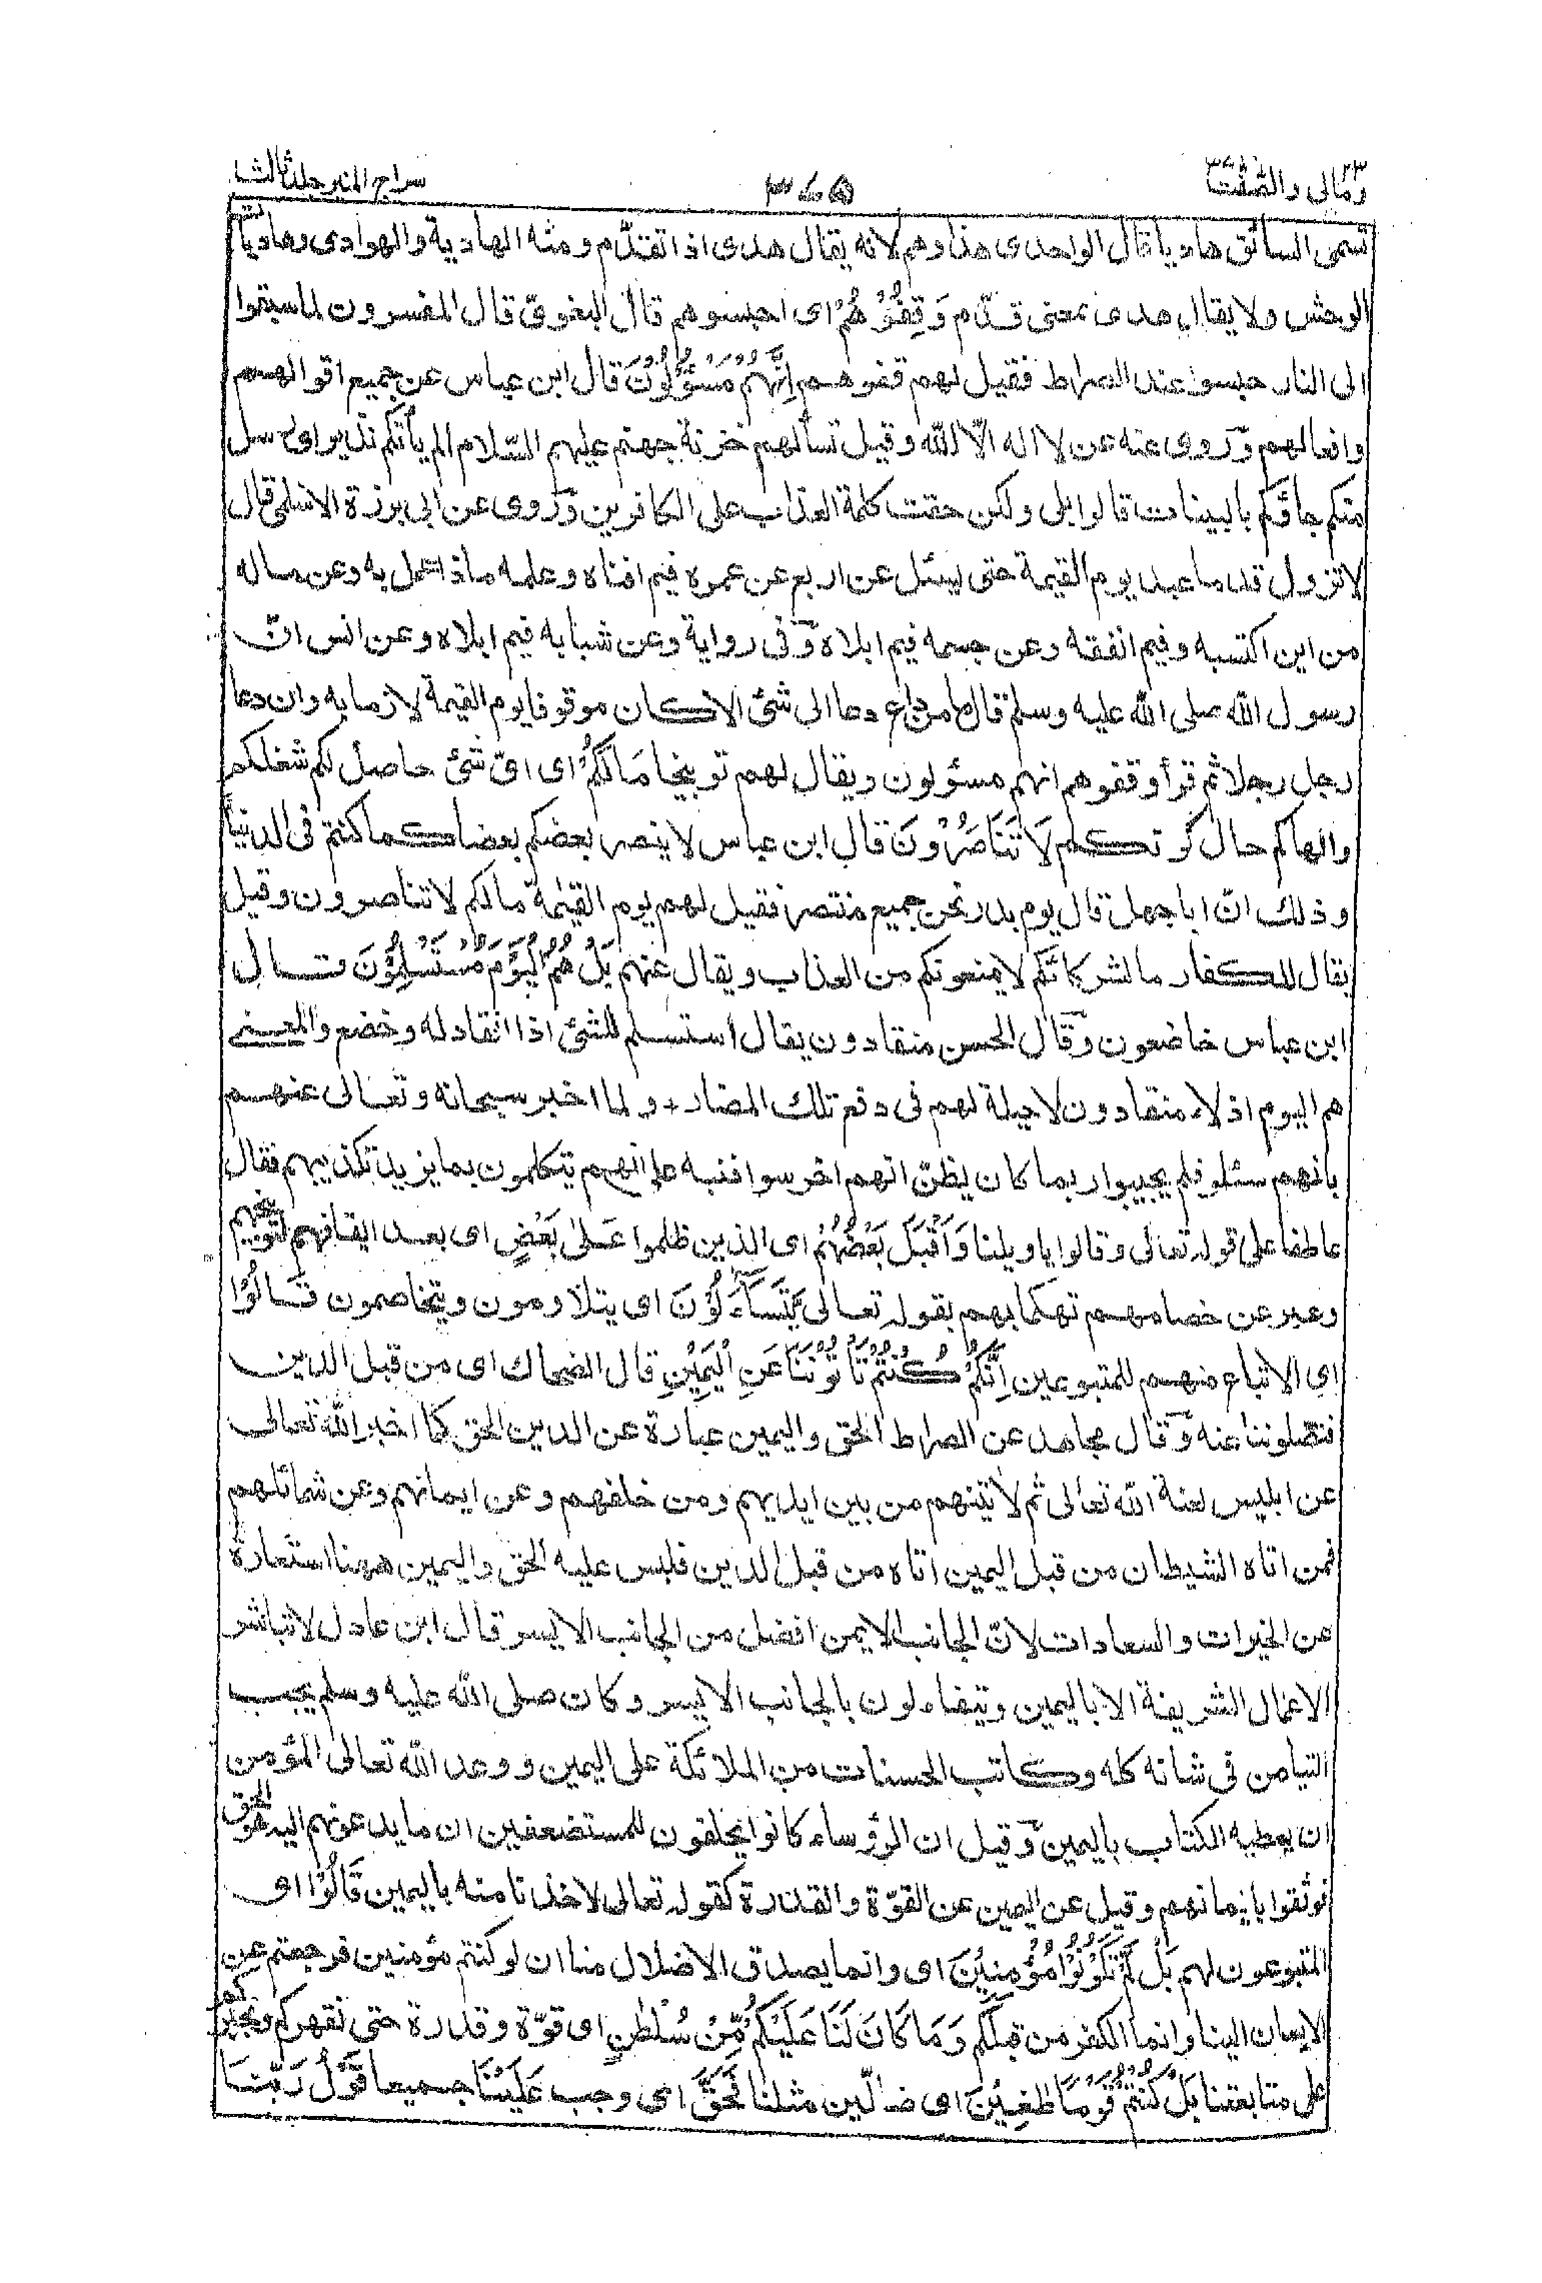 ٢٣ ومالى والصّٰفّٰت ٣٧
٣٧٥
سراج المنير جلد ثالث
تسمى السائق هاديا قال الواحدى هذا وهم لانه يقال هدى اذا تقدّم ومنه الهادية والهوادى وهاديات
الوحش ولا يقال هدى بمعنى قدّم وَقِفُوْهُمْ اى احبسوهم قال البغوىّ قال المفسرون لما سيقوا
الى النار حبسوا عند الصراط فقيل لهم قفوهم اِنَّهُمْ مَسْؤُلُوْنَ قال ابن عباس عن جميع اقوالهم
وافعالهم وَّرَوى عنه عن لا اله الّا اللّٰه وقيل تسألهم خزنة جهنم عليهم السّلام الم يأتكم نذير او رسل
منكم جاؤكم بالبينات قالوا بلى ولكن حقت كلمة العذاب على الكافرين وَرَوى عن ابى برزة الاسلمى قال
لا تزول قدما عبد يوم القيمة حتى يسئل عن اربع عن عمره فيم افناه وعلمه ماذا عمل به وعن ماله
من اين اكتسبه وفيم انفقه وعن جسمه فيم ابلاه وّفى رواية وعن شبابه فيم ابلاه وعن انس انّ
رسول اللّٰه صلى اللّٰه عليه وسلم قال ما من داع دعا الى شئ الا كان موقوفا يوم القيمة لازما به وان دعا
رجل رجلا ثم قرأ وقفوهم انهم مسؤلون ويقال لهم توبيخا مَالَكُمْ اى اىّ شئ حاصل لكم شغلكم
والهاكم حال كونكم لَا تَنَاصَرُوْنَ قال ابن عباس لا ينصر بعضكم بعضا كما كنتم فى الدنيا
وذلك انّ ابا جهل قال يوم بدر نحن جميع منتصر فقيل لهم يوم القيٰمة مالكم لا تناصرون وقيل
يقال للكفار ما لشركائكم لا يمنعونكم من العذاب ويقال عنهم بَلْ هُمُ الْيَوْمَ مُسْتَسْلِمُوْنَ قال
ابن عباس خاضعون وّقال الحسن منقادون يقال استسلم للشئ اذا انقاد له وخضع والمعنى
هم اليوم اذلاء منقادون لا حيلة لهم فى دفع تلك المضار ولما اخبر سبحانه وتعالى عنهم
بانهم سئلوا فلم يجيبوا ربما كان يظنّ انهم اخرسوا فنبه على انهم يتكلمون بما يزيد تكذيبهم فقال
عاطفا على قوله تعالى وقالوا يا ويلنا وَاَقْبَلَ بَعْضُهُمْ اى الذين ظلموا عَلىٰ بَعْضٍ اى بعد ايقافهم لتوبيخهم
وعبر عن خصامهم تهكما بهم بقوله تعالى يَّتَسَآءَلُوْنَ اى يتلاومون ويتخاصمون قَالُوْا
اى الاتباع منهم للمتبوعين اِنَّكُمْ كُنْتُمْ تَاْتُوْنَنَا عَنِ الْيَمِيْنِ قال الضحاك اى من قبل الدين
فتضلوننا عنه وَّقال مجاهد عن الصراط الحق واليمين عبارة عن الدين الحق كما اخبر اللّٰه تعالى
عن ابليس لعنة اللّٰه تعالى ثم لاتينهم من بين ايديهم ومن خلفهم وعن ايمانهم وعن شمائلهم
فمن اتاه الشيطان من قبل اليمين اتاه من قبل الدين فلبس عليه الحق واليمين ههنا استعارة
عن الخيرات والسعادات لانّ الجانب الايمن افضل من الجانب الايسر قال ابن عادل لا تباشر
الاعمال الشريفة الا باليمين ويتفاءلون بالجانب الايسر وكان صلى اللّٰه عليه وسلم يحب
التيامن فى شانه كله وكاتب الحسنات من الملائكة على اليمين ووعد اللّٰه تعالى المؤمن
ان يعطيه الكتاب باليمين وّقيل ان الرؤساء كانوا يحلفون للمستضعفين ان ما يدعونهم اليه هو الحق
فوثقوا بايمانهم وقيل عن اليمين عن القوّة والقدرة كقوله تعالى لاخذنا منه باليمين قَالُوْا اى
المتبوعون لهم بَلْ لَّمْ تَكُوْنُوْا مُؤْمِنِيْنَ اى وانما يصدق الاضلال منا ان لو كنتم مؤمنين فرجعتم عن
الايمان الينا وانما الكفر من قبلكم وَمَا كَانَ لَنَا عَلَيْكُمْ مِّنْ سُلْطٰنٍ اى قوّة وقدرة حتى نقهركم ونجبركم
على متابعتنا بَلْ كُنْتُمْ قَوْمًا طٰغِيْنَ اى ضالّين مثلنا فَحَقَّ اى وجب عَلَيْنَا جميعا قَوْلُ رَبِّنَا